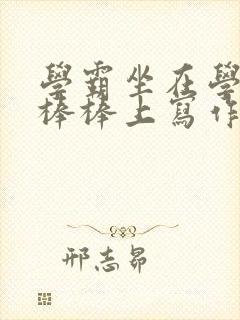 學霸坐在學
棒棒上寫作
邢志昂